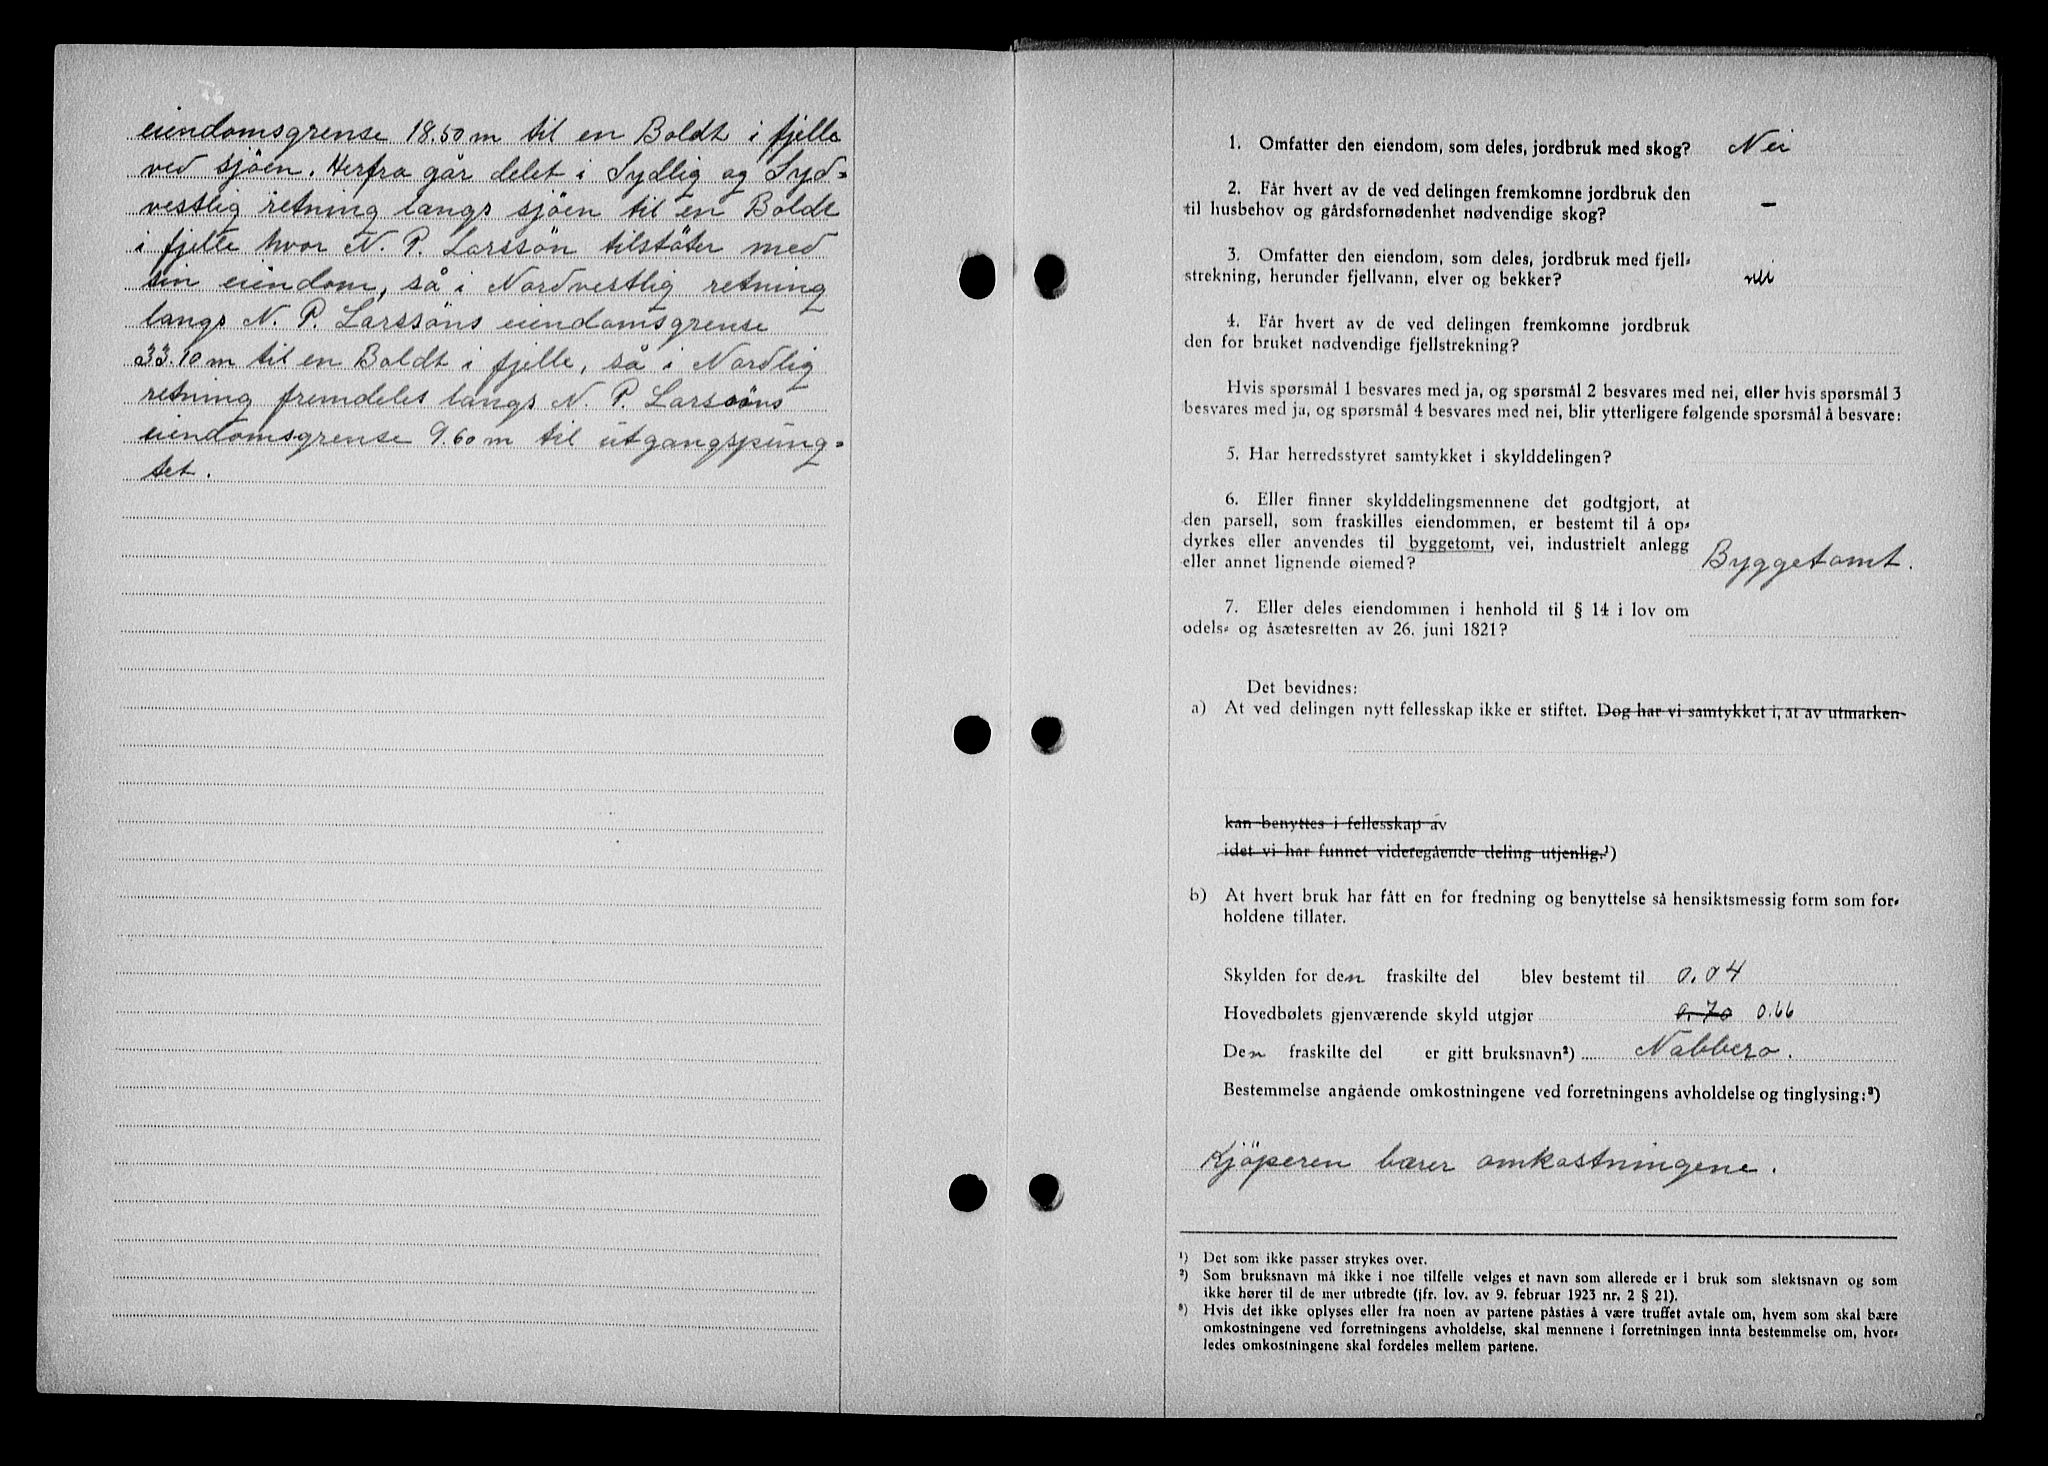 eiendomsgrense 18.50 m til en Boldt i fjelle
ved sjöen. Herfra går delet i Sydlig og Syd-
vestlig retning langs sjöen til en Boldt
i fjelle hvor N. P. Larssön tilstöter med
sin eiendom, så i Nordvestlig retning
langs N. P. Larssöns eiendomsgrense
33.10 m til en Boldt i fjelle, så i Nordlig
retning fremdeles langs N. P. Larssöns
eiendomsgrense 9.60 m til utgangspung-
tet.
1. Omfatter den eiendom, som deles, jordbruk med skog? Nei
2. Får hvert av de ved delingen fremkomne jordbruk den
til husbehov og gårdsfornødenhet nødvendige skog? –
3. Omfatter den eiendom, som deles, jordbruk med fjell-
strekning, herunder fjellvann, elver og bekker? nei
4. Får hvert av de ved delingen fremkomne jordbruk
den for bruket nødvendige fjellstrekning?
Hvis spørsmål 1 besvares med ja, og spørsmål 2 besvares med nei, eller hvis spørsmål 3
besvares med ja, og spørsmål 4 besvares med nei, blir ytterligere følgende spørsmål å besvare:
5. Har herredsstyret samtykket i skylddelingen?
6. Eller finner skylddelingsmennene det godtgjort, at
den parsell, som fraskilles eiendommen, er bestemt til å op-
dyrkes eller anvendes til byggetomt, vei, industrielt anlegg
eller annet lignende øiemed? Byggetomt.
7. Eller deles eiendommen i henhold til § 14 i lov om
odels- og åsætesretten av 26. juni 1821?
Det bevidnes:
a) At ved delingen nytt fellesskap ikke er stiftet. Dog har vi samtykket i, at av utmarken
kan benyttes i fellesskap av
idet vi har funnet videregående deling utjenlig.¹)
b) At hvert bruk har fått en for fredning og benyttelse så hensiktsmessig form som for-
holdene tillater.
Skylden for den fraskilte del blev bestemt til 0.04
Hovedbølets gjenværende skyld utgjør 0.70 0.66
Den fraskilte del er gitt bruksnavn²) Nabbero.
Bestemmelse angående omkostningene ved forretningens avholdelse og tinglysing:³)
Kjöperen bærer omkostningene.
¹) Det som ikke passer strykes over.
²) Som bruksnavn må ikke i noe tilfelle velges et navn som allerede er i bruk som slektsnavn og som
ikke hører til de mer utbredte (jfr. lov. av 9. februar 1923 nr. 2 § 21).
³) Hvis det ikke oplyses eller fra noen av partene påståes å være truffet avtale om, hvem som skal bære
omkostningene ved forretningens avholdelse, skal mennene i forretningen innta bestemmelse om, hvor-
ledes omkostningene skal fordeles mellem partene.